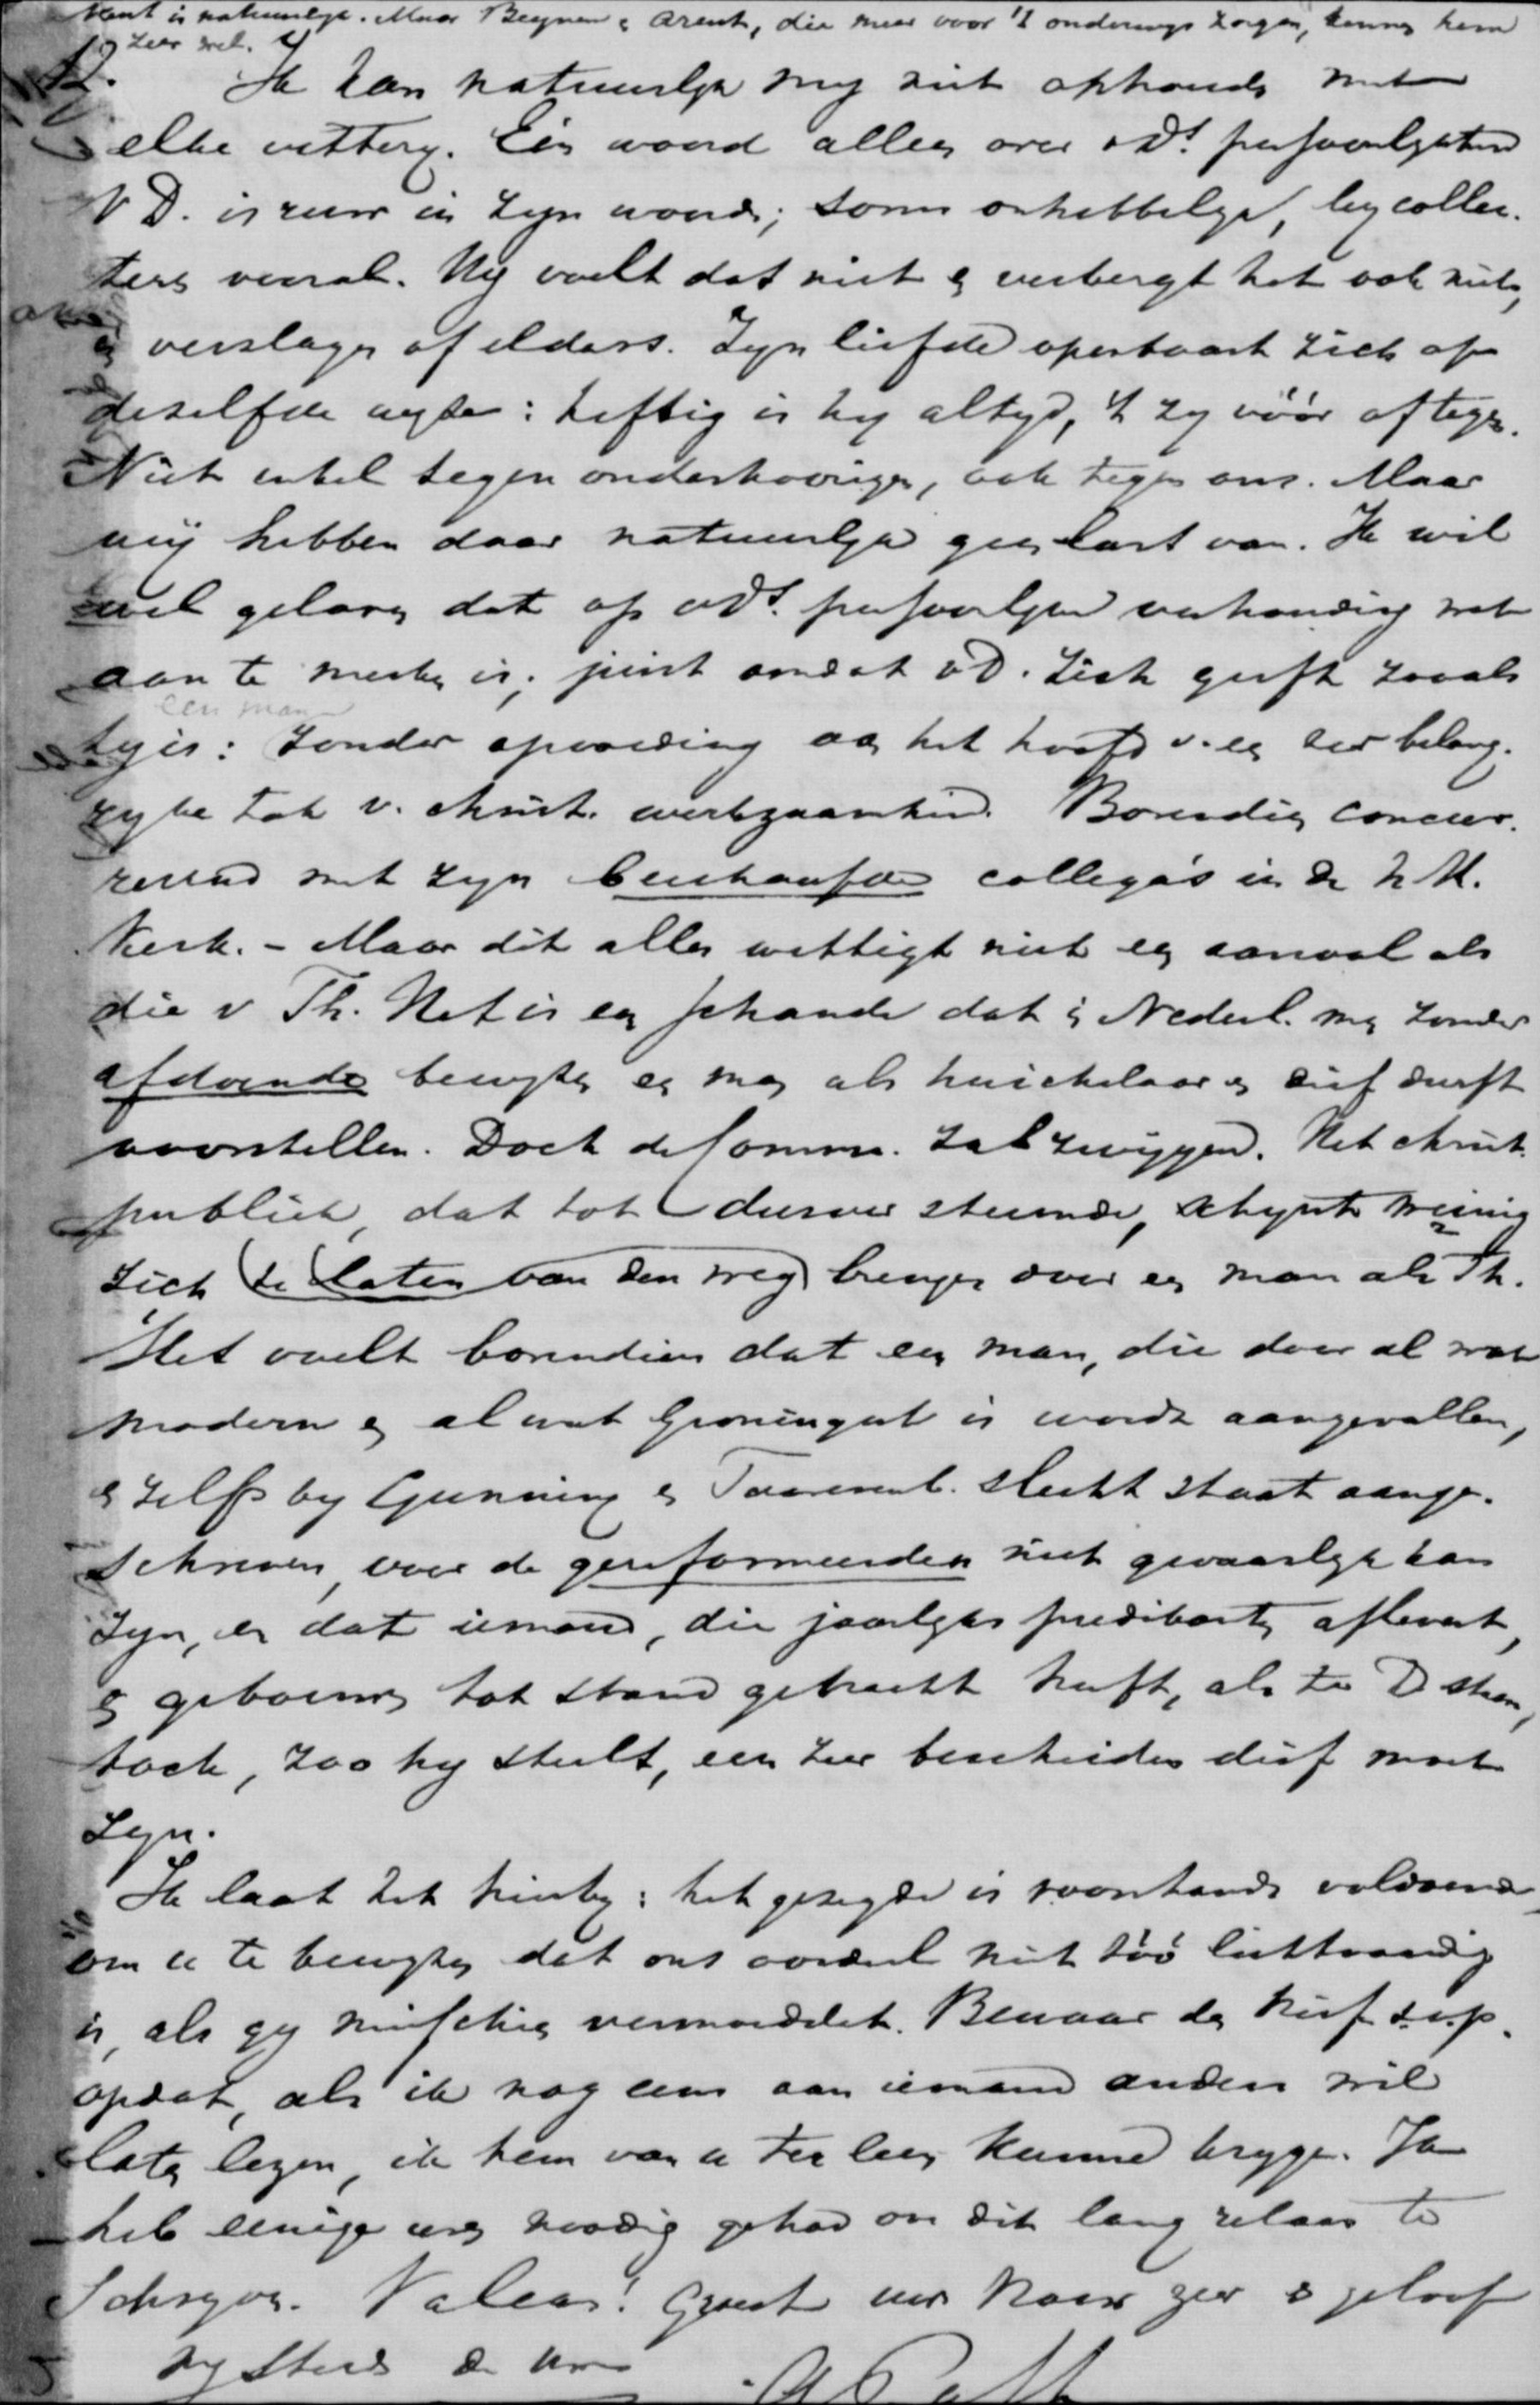 kent is natuurlyk. Maar Beynen & Arent, die meer voor 't onderwys zorgen, kennen hem
zeer wel.
12. Ik kan natuurlyk my niet ophouden met
elke vittery. Eén woord alleen over vDs. persoonlykheid
V D. is ruw in zyn woorden; soms onhebbelyk, by collec-
ters vooral. Hy voelt dat niet & verbergt het ook niet,
in verslagen of elders. Zyn liefde openbaart zich op
dezelfde wyze: heftig is hy altyd, 't zy vóór of tegen.
Niet enkel tegen onderhoorigen, ook tegen ons. Maar
wij hebben daar natuurlyk geen last van. Ik wil
wel gelooven dat op vDs. persoonlyke verhouding wat
aan te merken is, juist omdat vD. zich geeft zooals
hy is: een man zonder opvoeding aan het hoofd v. een zeer belang-
ryke tak v. christ. werkzaamheid. Bovendien concur-
reerend met zyn beschaafde collega's in de N. H.
Kerk. - Maar dit alles wettigt niet een aanval als
die v Th. Het is een schande dat in Nederl. men zonder
afdoende bewyzen een man als huichelaar en dief durft
voorstellen. Doch de Comm. zal zwygen. Het christ.
publiek, dat tot dusver steunde, schynt weinig
zich te laten van den weg brengen door een man als Th.
Het voelt bovendien dat een man, die door al wat
modern & al wat Groningsch is wordt aangevallen,
& zelfs by Gunning & slecht staat aange-
schreven, voor de gereformeerden niet gevaarlyk kan
zyn, en dat iemand, die jaarlyks predikanten aflevert,
& gebouwen tot stand gebracht heeft, als te D staan,
toch, zoo hy steelt, een zeer bescheiden dief moet
zyn.
Ik laat het hierby: het gezegde is voorshands voldoende
om u te bewyzen dat ons oordeel niet zóó lichtvaardig
is, als gy misschien vermoeddet. Bewaar den brief s.v.p.
opdat, als ik nog eens aan iemand anders wil
laten lezen, ik hem van u ter leen kunne krygen. Ik
heb eenige uren noodig gehad om dit lang relaas te
schryven. Valeas! Groet uw zeer & geloof
my steeds de uwe